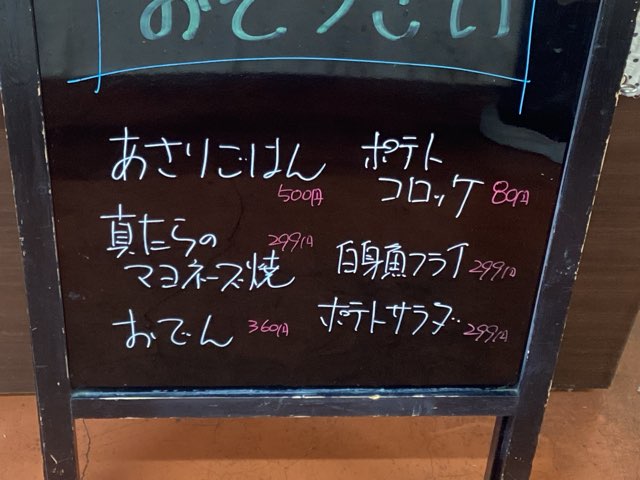 おそうざい
あさりごはん
500円
真たらの 299円
マヨネーズ焼
おでん 360円
ポテト
コロッケ 80円
白身魚フライ 299円
ポテトサラダ 299円